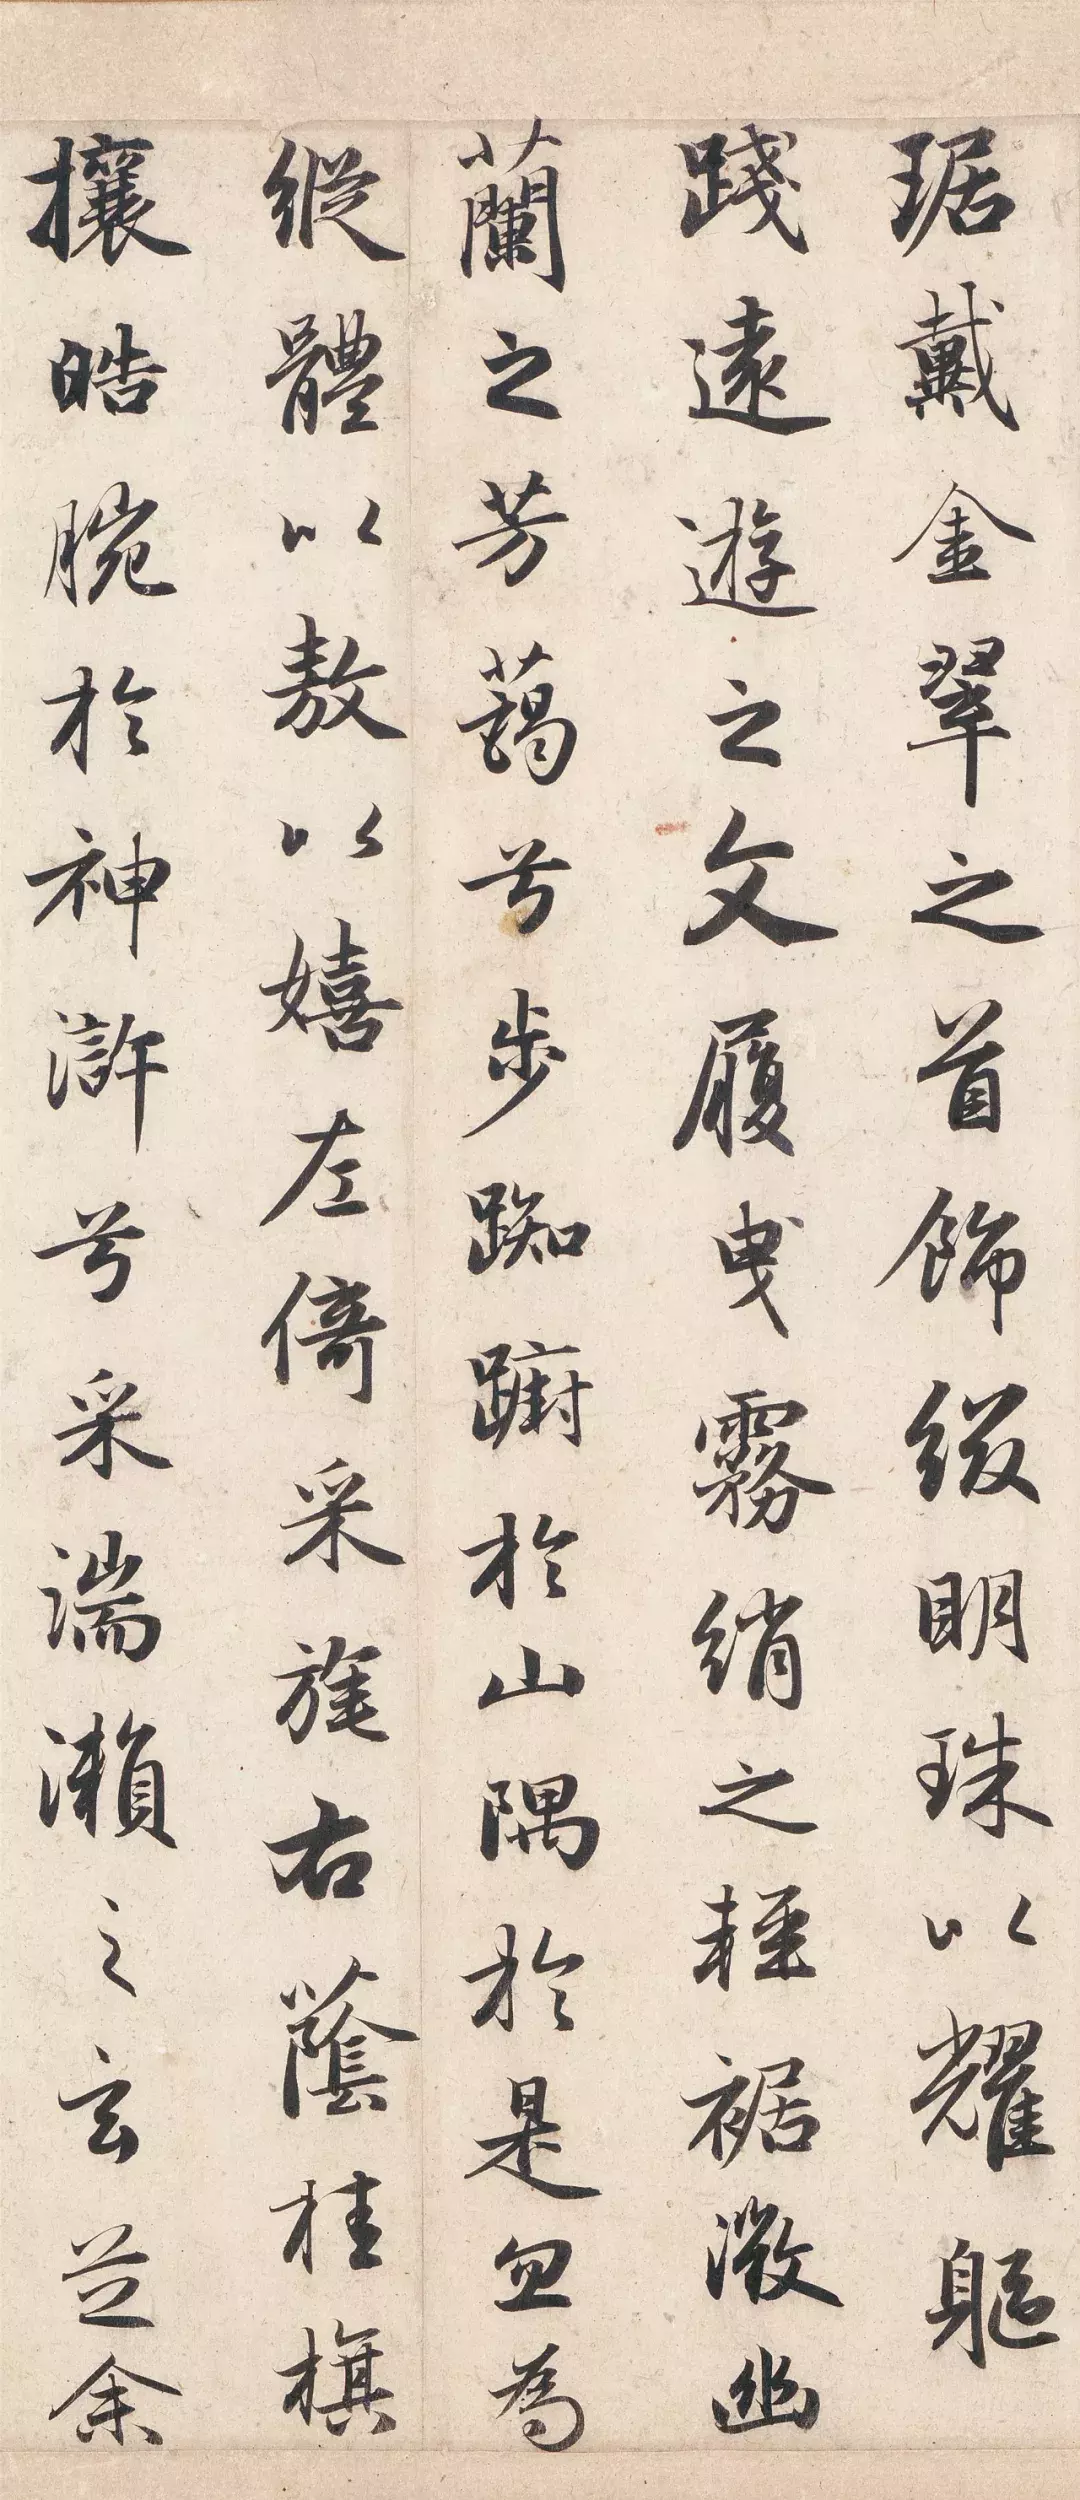 琚戴金翠之首飾綴明珠以耀軀
踐遠遊之文履曳霧綃之輕裾微幽
蘭之芳藹兮步踟躕於山隅於是忽焉
縱體以敖以嬉左倚采旄右蔭桂旗
攘皓腕於神滸兮采湍瀨之玄芝余